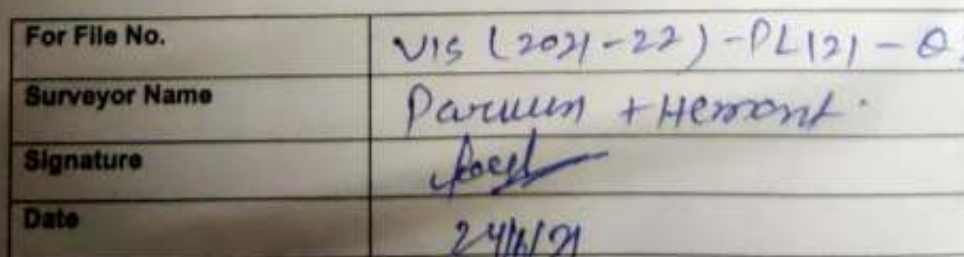 For File No. VIS (2021-22)-PL121-Q
Surveyor Name Parveen + Hemant.
Signature
Date